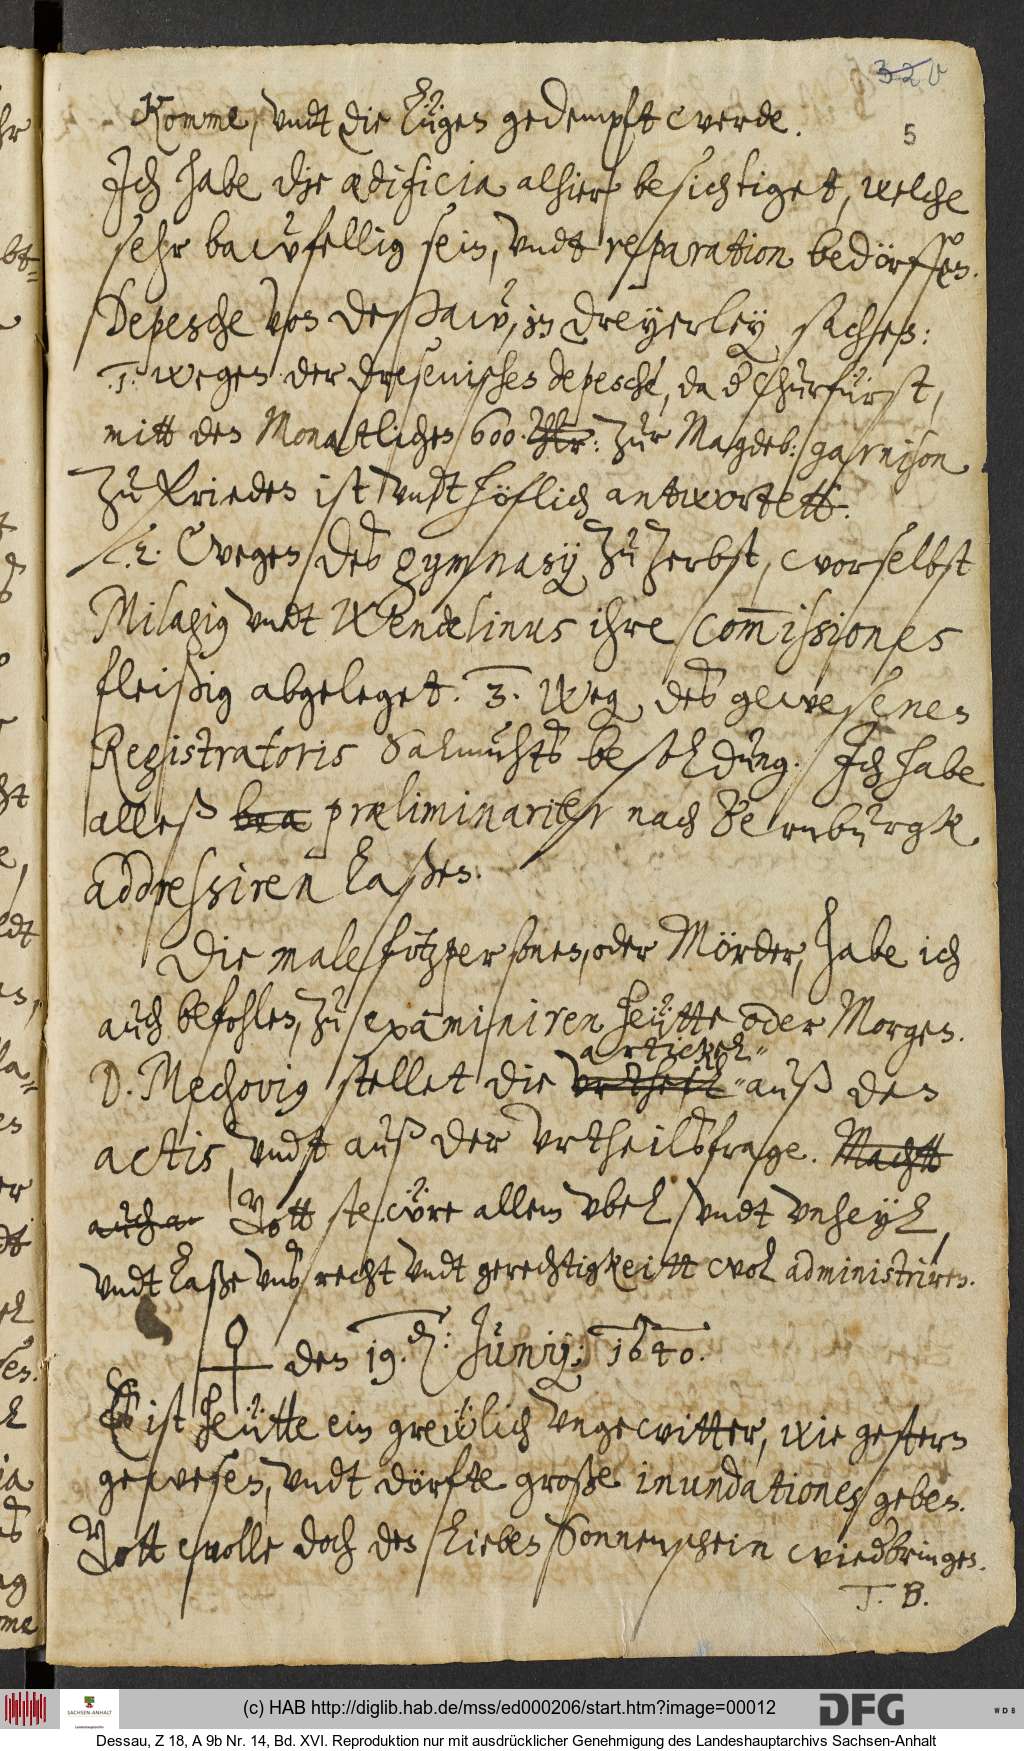 320
5
komme, vndt die lügen gedempft werde.
Ich habe die ædificia alhier besichtiget, welche
sehr bawfellig sein, vndt reparation bedörffen.
Depesche von Deßaw, in dreyerley sachen:
1. wegen der dresenischen depesche, da der Churfürst,
mitt den Monatlichen 600 Thlr: zur Magdeb: garnison
zu frieden ist vndt höflich antwortett.
2. Wegen des gymnasij zu Zerbst, worselbst
Milagius vndt Wendelinus ihre commissiones
fleißig abgeleget. 3. Weg. des gewesenen
Registratoris Salmuhts besoldung. Ich habe
alleß præliminariter nach Bernburgk
addressiren laßen.
Die malefitzpersonen, oder Mörder, habe ich
auch befohlen, zu examiniren heütte oder Morgen.
artickel
D. Mechovius stellet die vrtheil auß den
actis, vndt auß der vrtheilsfrage. Machtt
auch an Gott stewre allem vbel vndt vnheyl,
vndt laße vns recht vndt gerechtigkeitt wol administriren.
♀ den 19. d: Junij; 1640.
Es ist heütte ein grewlich vngewitter, wie gestern
gewesen, vndt dörfte große inundationes geben.
Gott wolle doch den lieben Sonnenschein wiedbringen.
T. B.
(c) HAB http://diglib.hab.de/mss/ed000206/start.htm?image=00012
SACHSEN-ANHALT
DFG
WDB
Dessau, Z 18, A 9b Nr. 14, Bd. XVI. Reproduktion nur mit ausdrücklicher Genehmigung des Landeshauptarchivs Sachsen-Anhalt